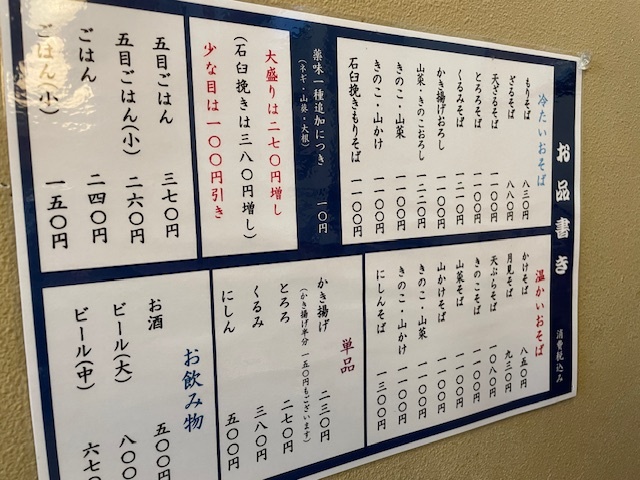 お品書き
消費税込み
冷たいおそば
もりそば 八三〇円
ざるそば 八八〇円
天ざるそば 一一〇〇円
とろろそば 一一〇〇円
くるみそば 一二一〇円
かき揚げおろし 一一〇〇円
山菜・きのこおろし 一二二〇円
きのこ・山菜 一一〇〇円
きのこ・山かけ 一一〇〇円
石臼挽きもりそば 一一〇〇円
薬味一種追加につき 一一〇円
(ネギ・山葵・大根)
大盛りは二七〇円増し
(石臼挽きは三八〇円増し)
少な目は一〇〇円引き
五目ごはん 三七〇円
五目ごはん(小) 二六〇円
ごはん 二四〇円
ごはん(小) 一五〇円
温かいおそば
かけそば 八五〇円
月見そば 九三〇円
天ぷらそば 一〇八〇円
きのこそば 一一〇〇円
山菜そば 一一〇〇円
山かけそば 一一〇〇円
きのこ・山菜 一一〇〇円
きのこ・山かけ 一一〇〇円
にしんそば 一三〇〇円
単品
かき揚げ 二三〇円
(かき揚げ半分 一五〇円もございます)
とろろ 二七〇円
くるみ 三八〇円
にしん 五〇〇円
お飲み物
お酒 五〇〇円
ビール(大) 八〇〇
ビール(中) 六七〇